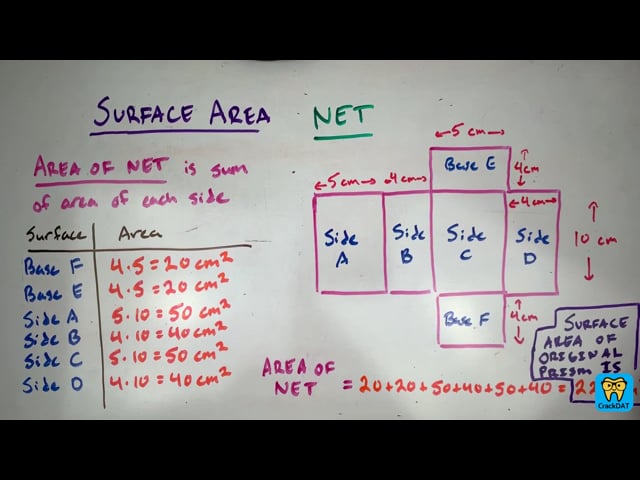 SURFACE AREA NET
AREA OF NET is sum
of area of each side
Surface Area
Base F 4·5=20 cm²
Base E 4·5=20 cm²
Side A 5·10=50 cm²
Side B 4·10=40 cm²
Side C 5·10=50 cm²
Side D 4·10=40 cm²
5 cm
Base E
4cm
5cm
4cm
4cm
Side A
Side B
Side C
Side D
10 cm
Base F
4cm
SURFACE
AREA OF
ORIGINAL
PRISM IS
AREA OF
NET = 20+20+50+40+50+40 =
CrackDAT